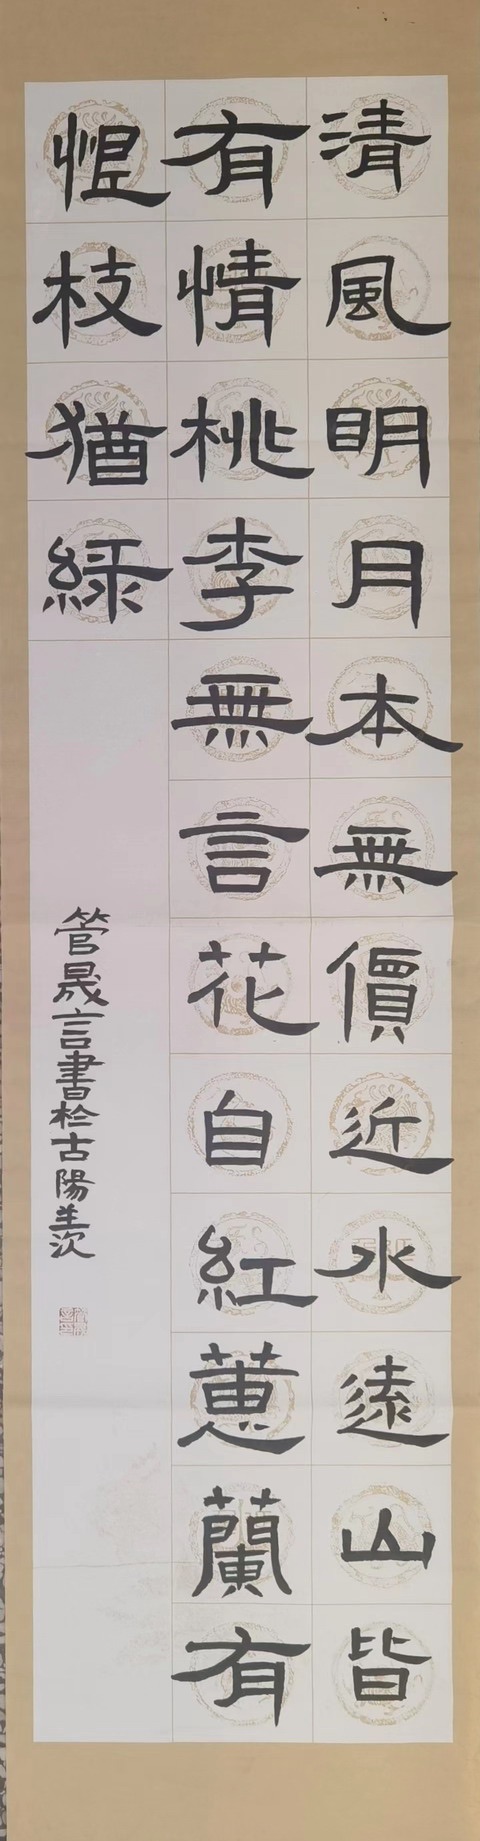 清風眀月本無價近水遠山皆
有情桃李無言花自紅蕙蘭有
枝猶綠
管晟言書於古陽羨